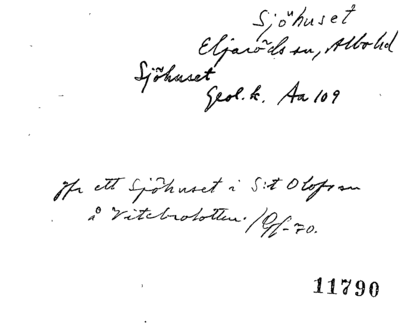 Sjöhuset
Eljaröds sn, Albo hd
Sjöhuset
Geol. k. Aa 109
jfr ett Sjöhuset i S:t Olofs sn
å Vitebrotorten. /
-70.
11790